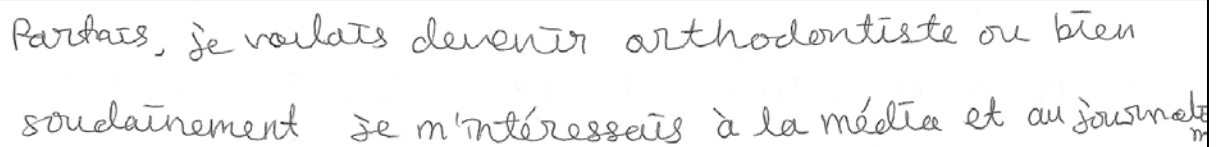 Parfois, je voulais devenir orthodontiste ou bien
soudainement je m'intéressais à la média et au journal